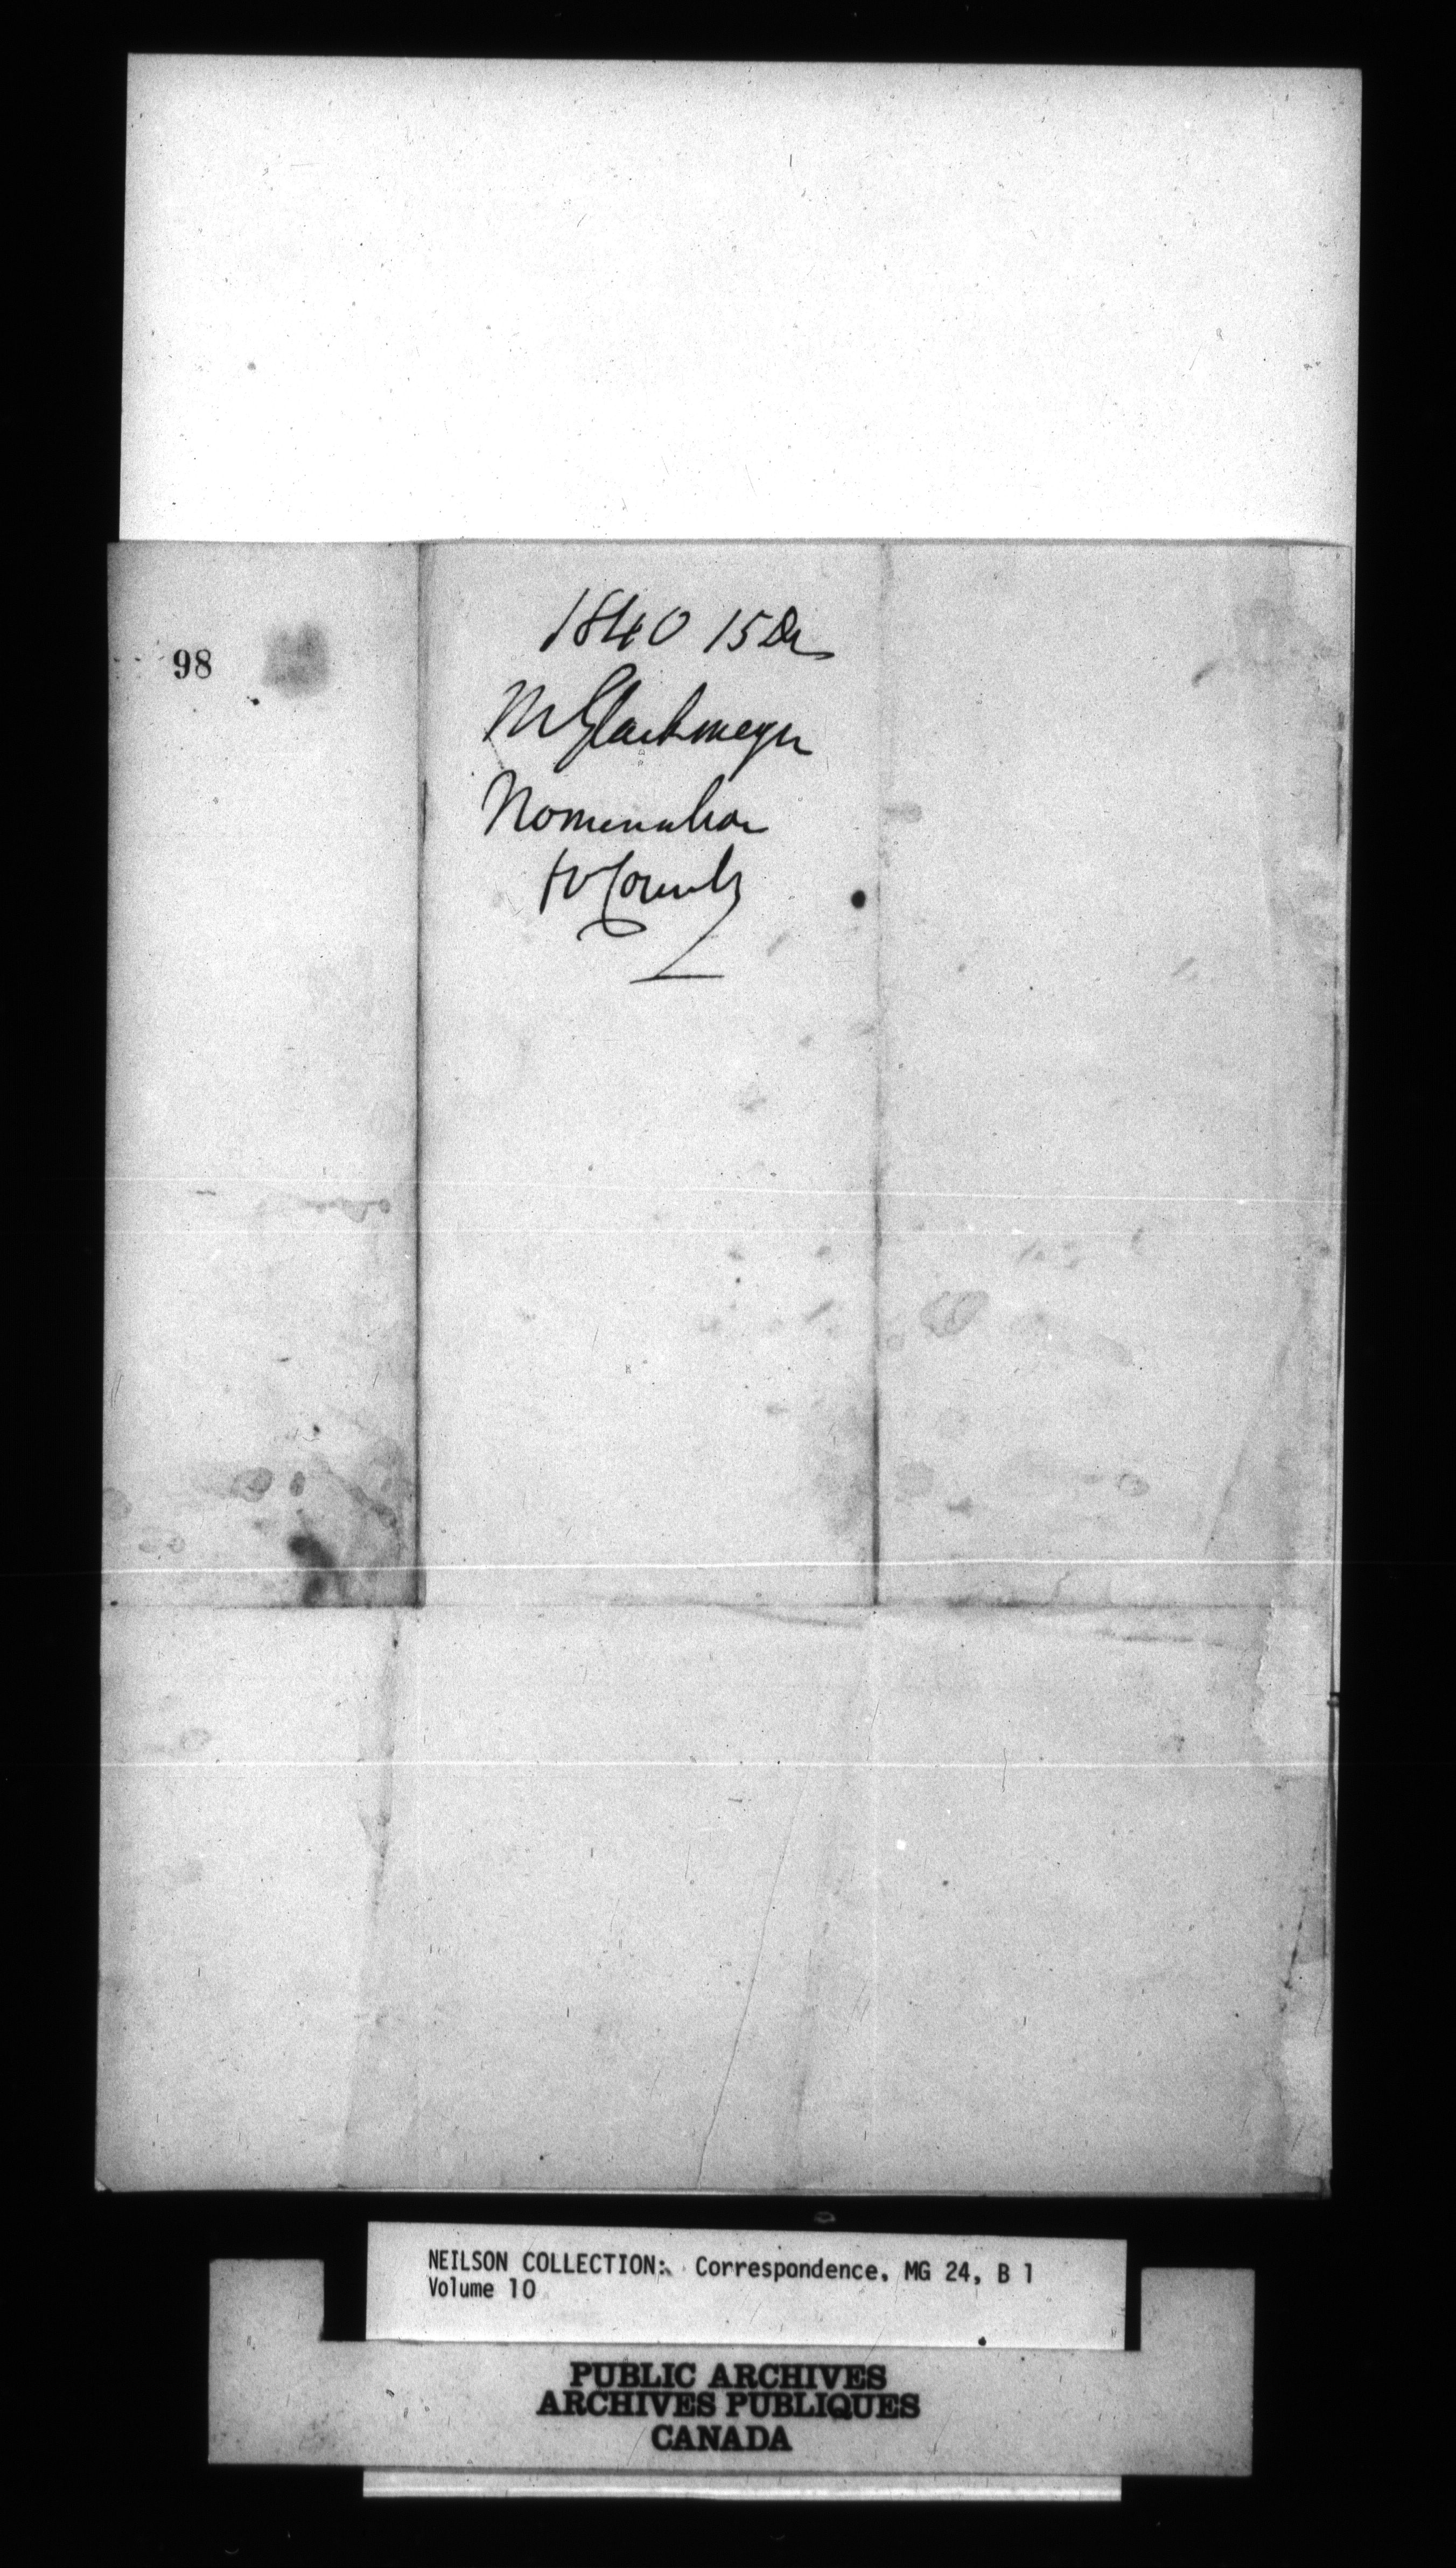 98
1840 15 Dr
M Glackmeyer
Nomination
to County
NEILSON COLLECTION: Correspondence, MG 24, B 1
Volume 10
PUBLIC ARCHIVES
ARCHIVES PUBLIQUES
CANADA